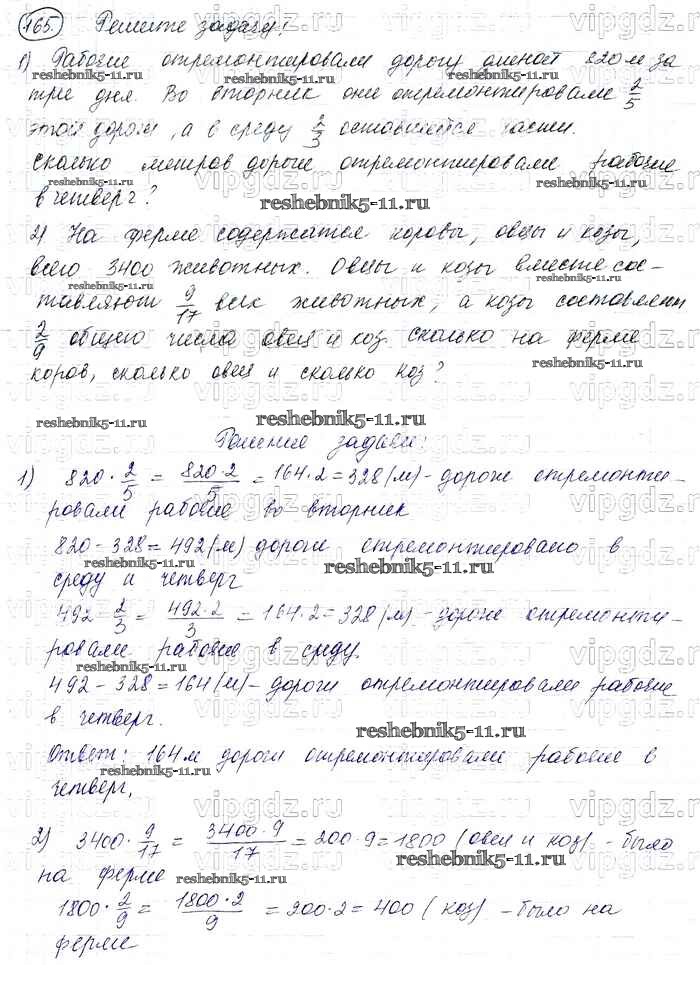 165. Решите задачу:
1) Рабочие отремонтировали дорогу длиной 820 м за
три дня. Во вторник они отремонтировали 2/5
этой дороги, а в среду 2/3 оставшейся части.
Сколько метров дороги отремонтировали рабочие
в четверг?
2) На ферме содержатся коровы, овцы и козы,
всего 3400 животных. Овцы и козы вместе сос-
тавляют 9/17 всех животных, а козы составляют
2/9 общего числа овец и коз. Сколько на ферме
коров, сколько овец и сколько коз?
Решение задачи:
1) 820 · 2/5 = 820·2/5 = 164·2 = 328 (м) - дороги отремонти-
ровали рабочие во вторник
820 - 328 = 492 (м) дороги отремонтировано в
среду и четверг
492 · 2/3 = 492·2/3 = 164·2 = 328 (м) - дороги отремонти-
ровали рабочие в среду.
492 - 328 = 164 (м) - дороги отремонтировали рабочие
в четверг.
Ответ: 164 м дороги отремонтировали рабочие в
четверг.
2) 3400 · 9/17 = 3400·9/17 = 200·9 = 1800 (овец и коз) - было
на ферме
1800 · 2/9 = 1800·2/9 = 200·2 = 400 (коз) - было на
ферме
reshebnik5-11.ru
vipgdz.ru